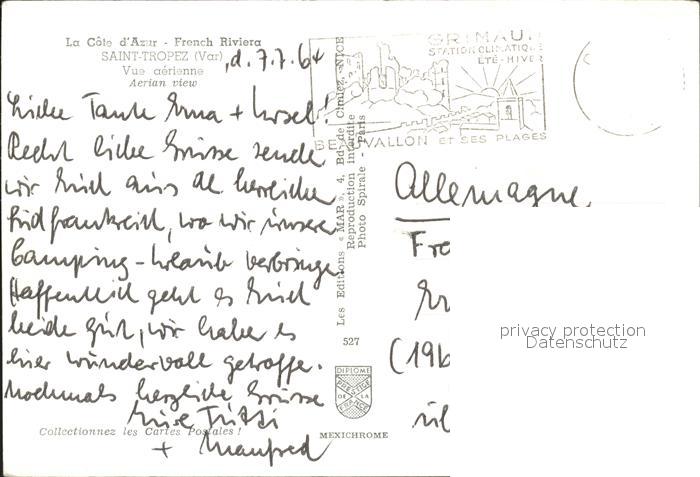 La Côte d'Azur - French Riviera
SAINT-TROPEZ (Var)
Vue aérienne
Aerian view
, d. 7.7.64
Liebe Tante Erna +
Recht liebe Grüsse sende
wir Euch aus de herrliche
Südfrankreich, wo wir unsere
Camping-Urlaub verbringe.
Hoffentlich geht es Euch
beide gut, wir habe es
hier wundervoll getroffe.
Nochmals herzliche Grüsse
Eure Trudi
+ Manfred
Collectionnez les Cartes Postales !
Les Editions « MAR », 4, Bd. de Cimiez, NICE
Reproduction interdite
Photo Spirale - Paris
527
DIPLOME
PRESTIGE
DE LA
FRANCE
MEXICHROME
GRIMAUD
STATION CLIMATIQUE
ÉTÉ-HIVER
BEAUVALLON ET SES PLAGES
Allemagne
Fre
Er
(196
privacy protection
Datenschutz